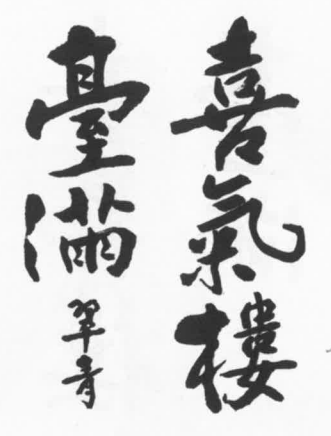 喜氣樓
臺滿
翠青